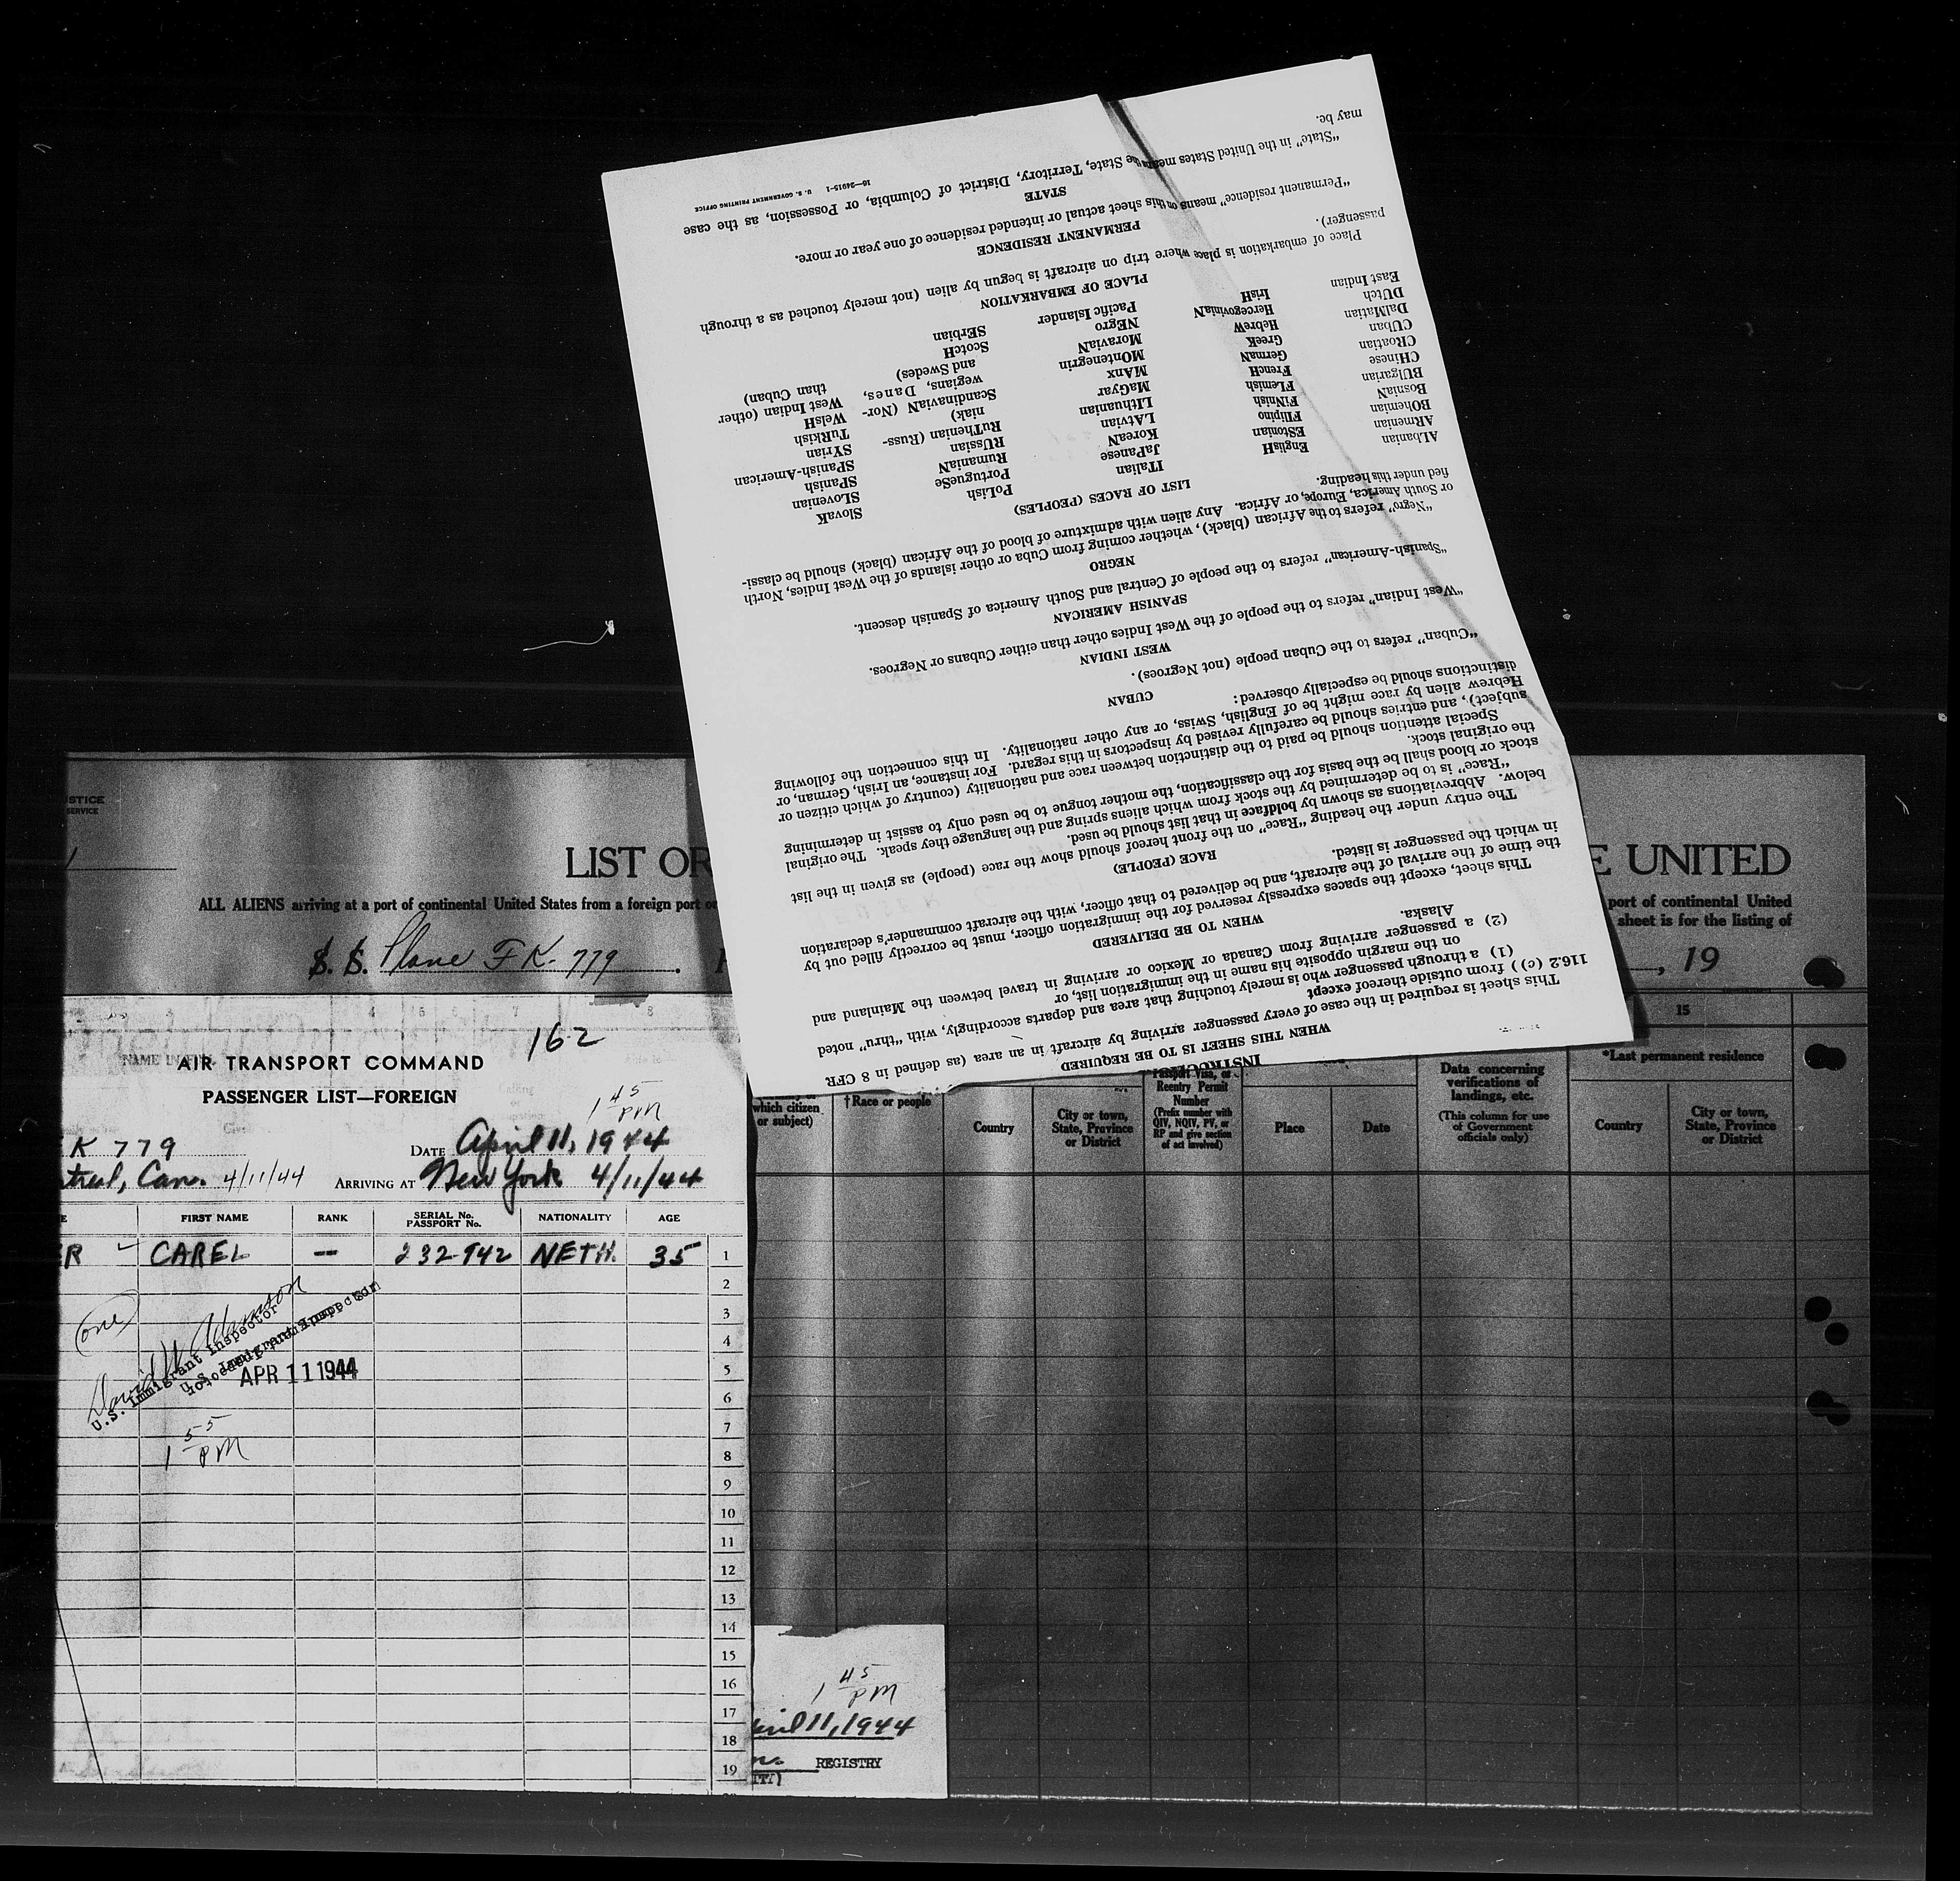 STICE
SERVICE
LIST OR
E UNITED
ALL ALIENS arriving at a port of continental United States from a foreign port or
port of continental United
sheet is for the listing of
S. S. Plane FK-779
, 19
15
*Last permanent residence
which citizen or subject)
†Race or people
Country
City or town, State, Province or District
Passport Visa, or Reentry Permit Number
(Prefix number with QIV, NQIV, PV, or RP and give section of act involved)
Place
Date
Data concerning verifications of landings, etc.
(This column for use of Government officials only)
Country
City or town, State, Province or District
162
AIR TRANSPORT COMMAND
PASSENGER LIST—FOREIGN
1 45 PM
K 779
DATE April 11, 1944
treal, Can. 4/11/44 ARRIVING AT New York 4/11/44
E FIRST NAME RANK SERIAL No. PASSPORT No. NATIONALITY AGE
ER CAREL -- 232942 NETH. 35 1
2
3
(one)
4
David W Adamson
U.S. Immigrant Inspector
APR 11 1944
5
6
7
1 55 PM
8
9
10
11
12
13
14
15
16
17
18
19
1 45 PM
pril 11, 1944
n. REGISTRY
ITY)
INSTRUC
WHEN THIS SHEET IS TO BE REQUIRED
This sheet is required in the case of every passenger arriving by aircraft in an area (as defined in 8 CFR
116.2 (c)) from outside thereof except
(1) a through passenger who is merely touching that area and departs accordingly, with "thru" noted
on the margin opposite his name in the immigration list, or
(2) a passenger arriving from Canada or Mexico or arriving in travel between the Mainland and
Alaska.
WHEN TO BE DELIVERED
This sheet, except the spaces expressly reserved for the immigration officer, must be correctly filled out by
the time of the arrival of the aircraft, and be delivered to that officer, with the aircraft commander's declaration
in which the passenger is listed.
RACE (PEOPLE)
The entry under the heading "Race" on the front hereof should show the race (people) as given in the list
below. Abbreviations as shown by boldface in that list should be used.
"Race" is to be determined by the stock from which aliens spring and the language they speak. The original
stock or blood shall be the basis for the classification, the mother tongue to be used only to assist in determining
the original stock.
Special attention should be paid to the distinction between race and nationality (country of which citizen or
subject), and entries should be carefully revised by inspectors in this regard. For instance, an Irish, German, or
Hebrew alien by race might be of English, Swiss, or any other nationality. In this connection the following
distinctions should be especially observed:
CUBAN
"Cuban" refers to the Cuban people (not Negroes).
WEST INDIAN
"West Indian" refers to the people of the West Indies other than either Cubans or Negroes.
SPANISH AMERICAN
"Spanish-American" refers to the people of Central and South America of Spanish descent.
NEGRO
"Negro" refers to the African (black), whether coming from Cuba or other islands of the West Indies, North
or South America, Europe, or Africa. Any alien with admixture of blood of the African (black) should be classi-
fied under this heading.
LIST OF RACES (PEOPLES)
ALbanian
ARmenian
BOhemian
BosniaN
BUlgarian
CHinese
CRoatian
CUban
DalMatian
DUtch
East Indian
EnglisH
EStonian
FIlipino
FiNNish
FLemish
FrencH
GermaN
GreeK
HebreW
HercegoviniaN
IrisH
ITalian
JaPanese
KoreaN
LAtvian
LIthuanian
MaGyar
MAnx
MOntenegrin
MoraviaN
NEgro
Pacific Islander
PoLish
PortugueSe
RumaniaN
RUssian
RuThenian (Russ-
niak)
ScandinaviaN (Nor-
wegians, Danes,
and Swedes)
ScotcH
SErbian
SlovaK
SLovenian
SPanish
SPanish-American
SYrian
TuRkish
WelsH
West Indian (other
than Cuban)
PLACE OF EMBARKATION
Place of embarkation is place where trip on aircraft is begun by alien (not merely touched as a through
passenger).
PERMANENT RESIDENCE
"Permanent residence" means on this sheet actual or intended residence of one year or more.
STATE
"State" in the United States means the State, Territory, District of Columbia, or Possession, as the case
may be.
16—24915-1 U. S. GOVERNMENT PRINTING OFFICE